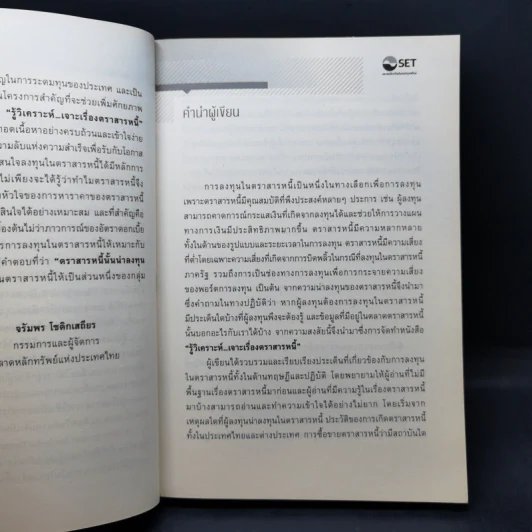 ญในการระดมทุนของประเทศ และเป็น
นโครงการสำคัญที่จะช่วยเพิ่มศักยภาพ
"รู้วิเคราะห์...เจาะเรื่องตราสารหนี้"
ายทอดเนื้อหาอย่างครบถ้วนและเข้าใจง่าย
วามลับแห่งความสำเร็จเพื่อรับกับโอกาส
สนใจลงทุนในตราสารหนี้ได้มีหลักการ
ไม่เพียงจะได้รู้ว่าทำไมตราสารหนี้จึง
งหัวใจของการหาราคาของตราสารหนี้
สินใจได้อย่างเหมาะสม และที่สำคัญคือ
องต้นไม่ว่าภาวการณ์ของอัตราดอกเบี้ย
ารลงทุนในตราสารหนี้ให้เหมาะกับ
คำตอบที่ว่า "ตราสารหนี้นั้นน่าลงทุน
นตราสารหนี้ให้เป็นส่วนหนึ่งของกลุ่ม
จรัมพร โชติกเสถียร
กรรมการและผู้จัดการ
ลาดหลักทรัพย์แห่งประเทศไทย
SET
คำนำผู้เขียน
การลงทุนในตราสารหนี้เป็นหนึ่งในทางเลือกเพื่อการลงทุน
เพราะตราสารหนี้มีคุณสมบัติที่พึงประสงค์หลายๆ ประการ เช่น ผู้ลงทุน
สามารถคาดการณ์กระแสเงินที่เกิดจากลงทุนได้และช่วยให้การวางแผน
ทางการเงินมีประสิทธิภาพมากขึ้น ตราสารหนี้มีความหลากหลาย
ทั้งในด้านของรูปแบบและระยะเวลาในการลงทุน ตราสารหนี้มีความเสี่ยง
ที่ต่ำโดยเฉพาะความเสี่ยงที่เกิดจากการบิดพลิ้วในกรณีที่ลงทุนในตราสารหนี้
ภาครัฐ รวมถึงการเป็นช่องทางการลงทุนเพื่อการกระจายความเสี่ยง
ของพอร์ตการลงทุน เป็นต้น จากความน่าลงทุนของตราสารหนี้จึงนำมา
ซึ่งคำถามในทางปฏิบัติว่า หากผู้ลงทุนต้องการลงทุนในตราสารหนี้
มีประเด็นใดบ้างที่ผู้ลงทุนพึงจะต้องรู้ และข้อมูลที่มีอยู่ในตลาดตราสารหนี้
นั้นบอกอะไรกับเราได้บ้าง จากความสงสัยนี้จึงนำมาซึ่งการจัดทำหนังสือ
"รู้วิเคราะห์...เจาะเรื่องตราสารหนี้"
ผู้เขียนได้รวบรวมและเรียบเรียงประเด็นที่เกี่ยวข้องกับการลงทุน
ในตราสารหนี้ทั้งในด้านทฤษฎีและปฏิบัติ โดยพยายามให้ผู้อ่านที่ไม่มี
พื้นฐานเรื่องตราสารหนี้มาก่อนและผู้อ่านที่มีความรู้ในเรื่องตราสารหนี้
มาบ้างสามารถอ่านและทำความเข้าใจได้อย่างไม่ยาก โดยเริ่มจาก
เหตุผลใดที่ผู้ลงทุนน่าลงทุนในตราสารหนี้ ประวัติของการเกิดตราสารหนี้
ทั้งในประเทศไทยและต่างประเทศ การซื้อขายตราสารหนี้ว่ามีสถาบันใด